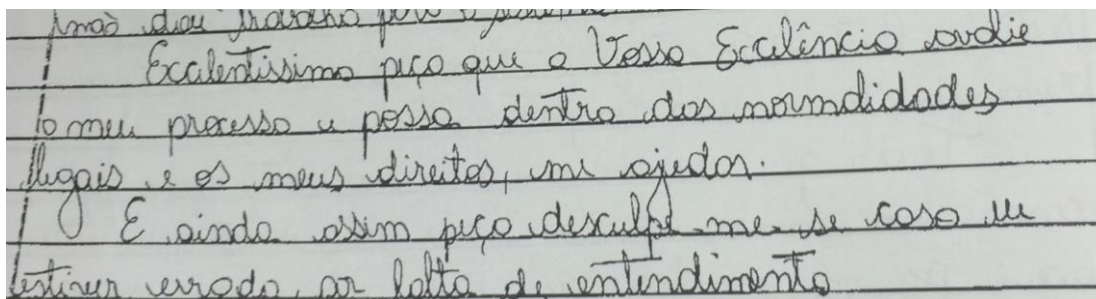 não dou trabalho para o
Excelentíssimo peço que a Vossa Excelência avalie
o meu processo e possa dentro das normalidades
legais e os meus direitos, me ajudar.
E ainda assim peço desculpe-me se caso eu
estiver errado, por falta de entendimento